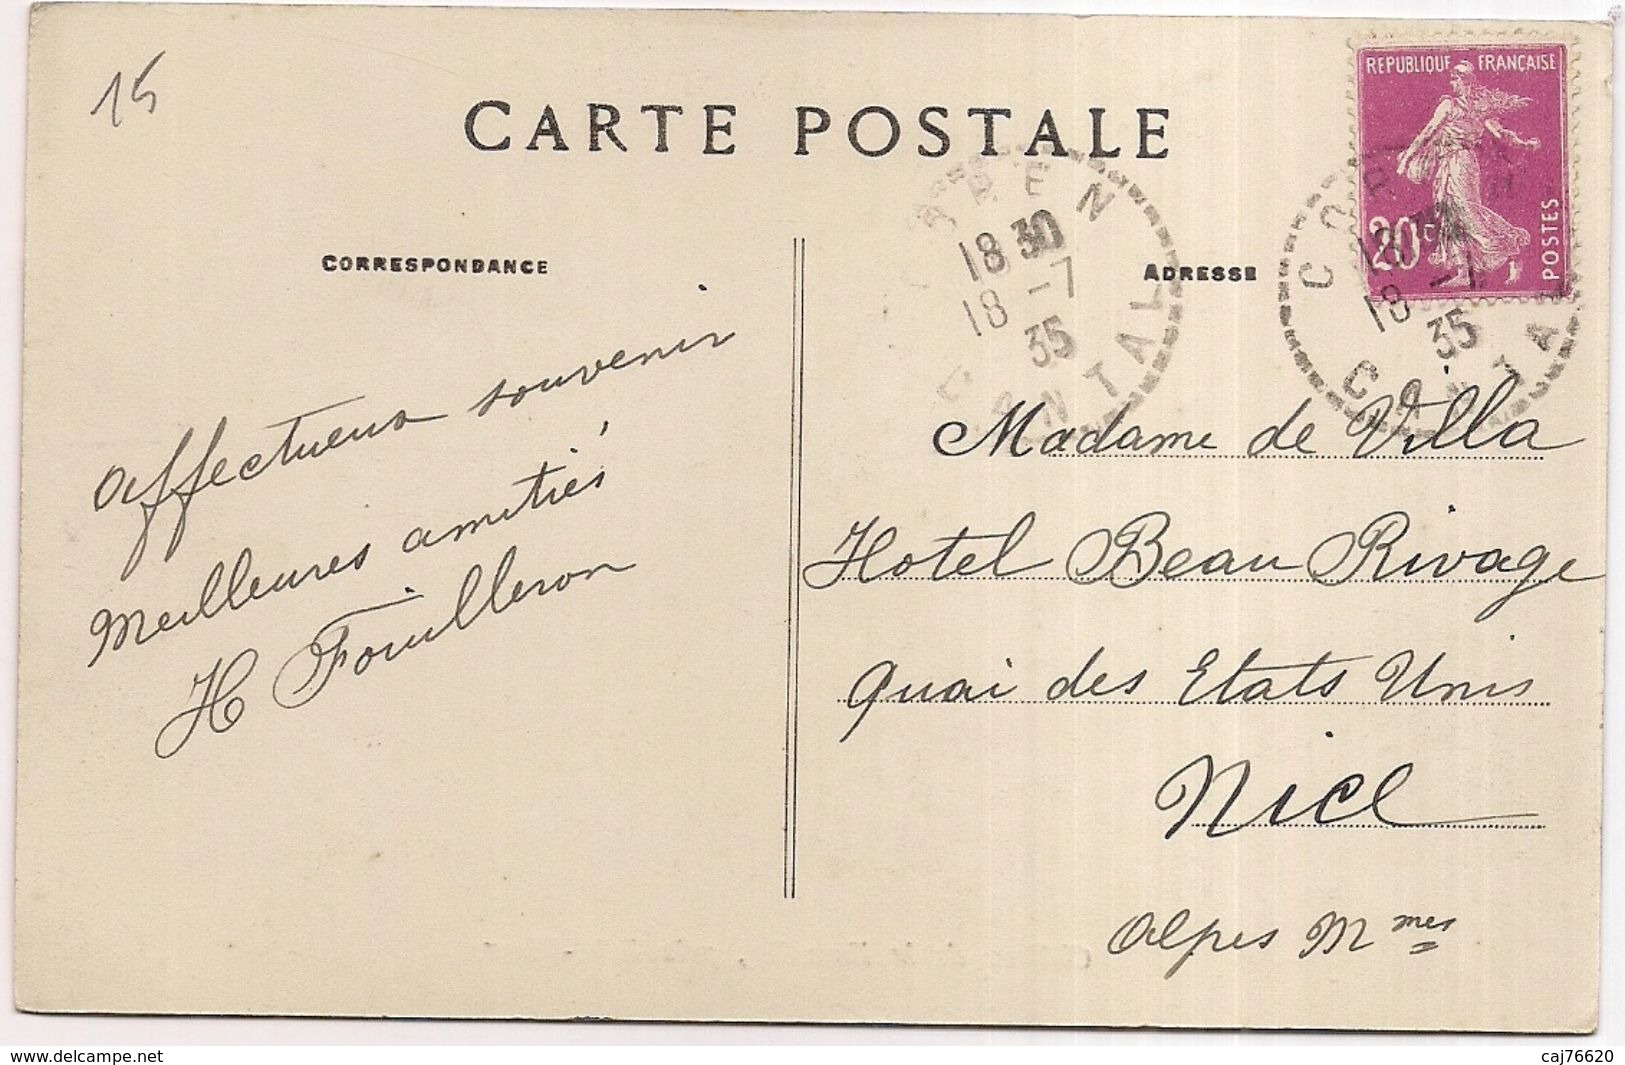 15
CARTE POSTALE
REPUBLIQUE FRANÇAISE
20c
POSTES
COREN
1830
18-7
35
CANTAL
CORRESPONDANCE
Affectueux souvenir
Meilleures amitiés
H Fouilleron
ADRESSE
Madame de Villa
Hotel Beau Rivage
Quai des Etats Unis
Nice
Alpes Mmes
www.delcampe.net
caj76620